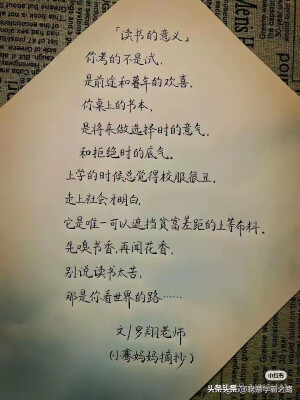 「读书的意义」
你考的不是试，
是前途和暮年的欢喜。
你桌上的书本，
是将来做选择时的意气，
和拒绝时的底气。
上学的时候总觉得校服很丑，
走上社会才明白，
它是唯一可以遮挡贫富差距的上等布料。
先嗅书香，再闻花香，
别说读书太苦，
那是你看世界的路……
文/罗翔老师
(小骞妈妈摘抄)
小红书